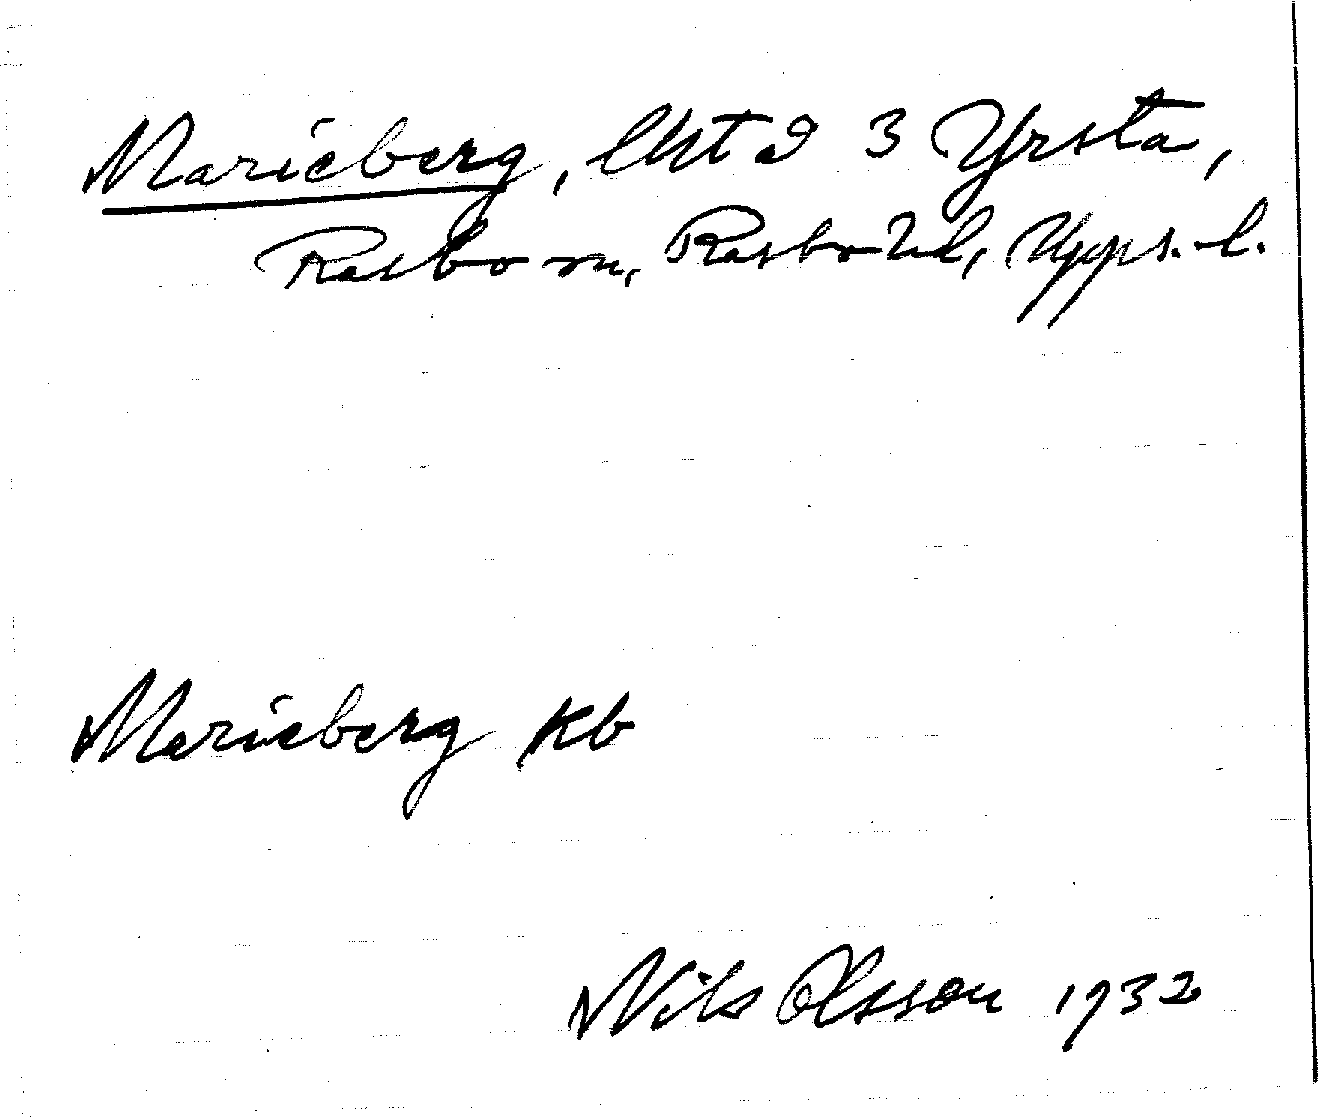 Marieberg, å 3 Yrsta,
Rasbo sn, Rasbo hd, Upps. l.
Marieberg kb
Nils Olsson 1932